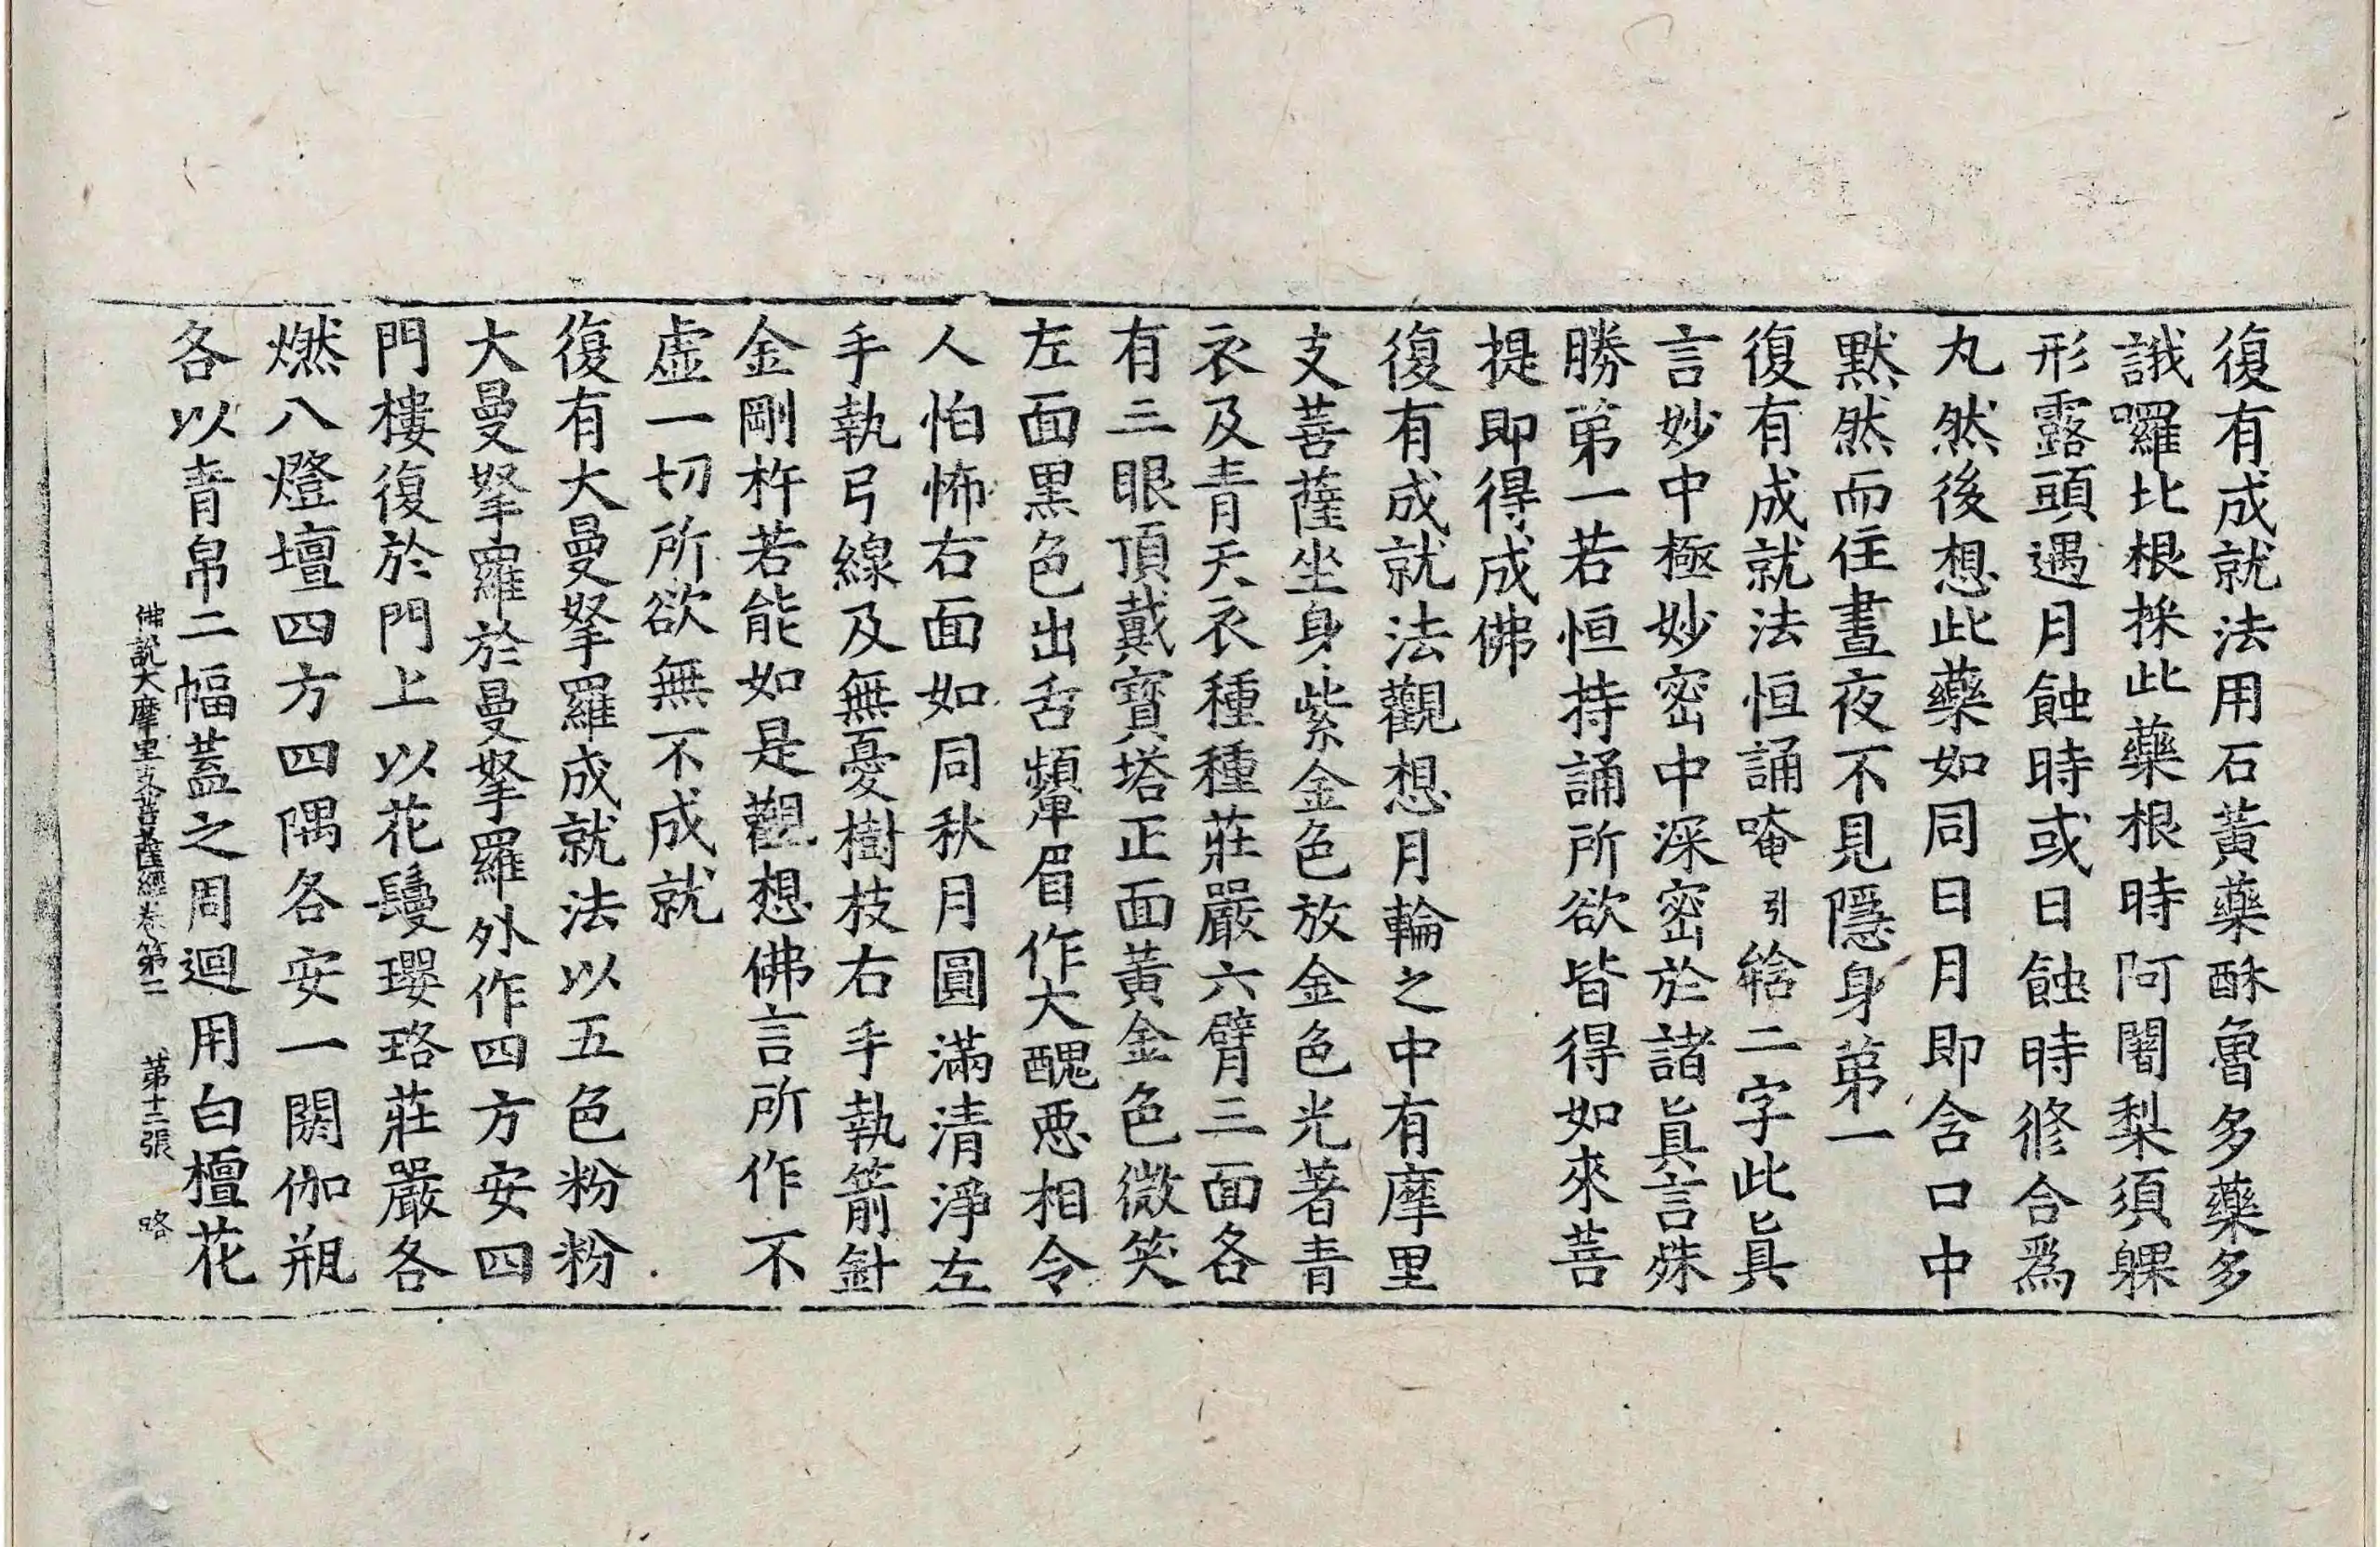 復有成就法用石黃藥酥魯多藥多
誐囉比根採此藥根時阿闍梨須躶
形露頭遇月蝕時或日蝕時修合爲
丸然後想此藥如同日月即含口中
默然而住晝夜不見隱身第一
復有成就法恒誦唵引㗶二字此眞
言妙中極妙密中深密於諸眞言殊
勝第一若恒持誦所欲皆得如來菩
提即得成佛
復有成就法觀想月輪之中有摩里
支菩薩坐身紫金色放金色光著青
衣及青天衣種種莊嚴六臂三面各
有三眼頂戴寶塔正面黃金色微笑
左面黑色出舌顰眉作大醜惡相令
人怕怖右面如同秋月圓滿清淨左
手執弓線及無憂樹枝右手執箭針
金剛杵若能如是觀想佛言所作不
虛一切所欲無不成就
復有大曼拏羅成就法以五色粉粉
大曼拏羅於曼拏羅外作四方安四
門樓復於門上以花鬘瓔珞莊嚴各
燃八燈壇四方四隅各安一閼伽瓶
各以青帛二幅蓋之周迴用白檀花
佛說大摩里支菩薩經卷第二 第十二張 略